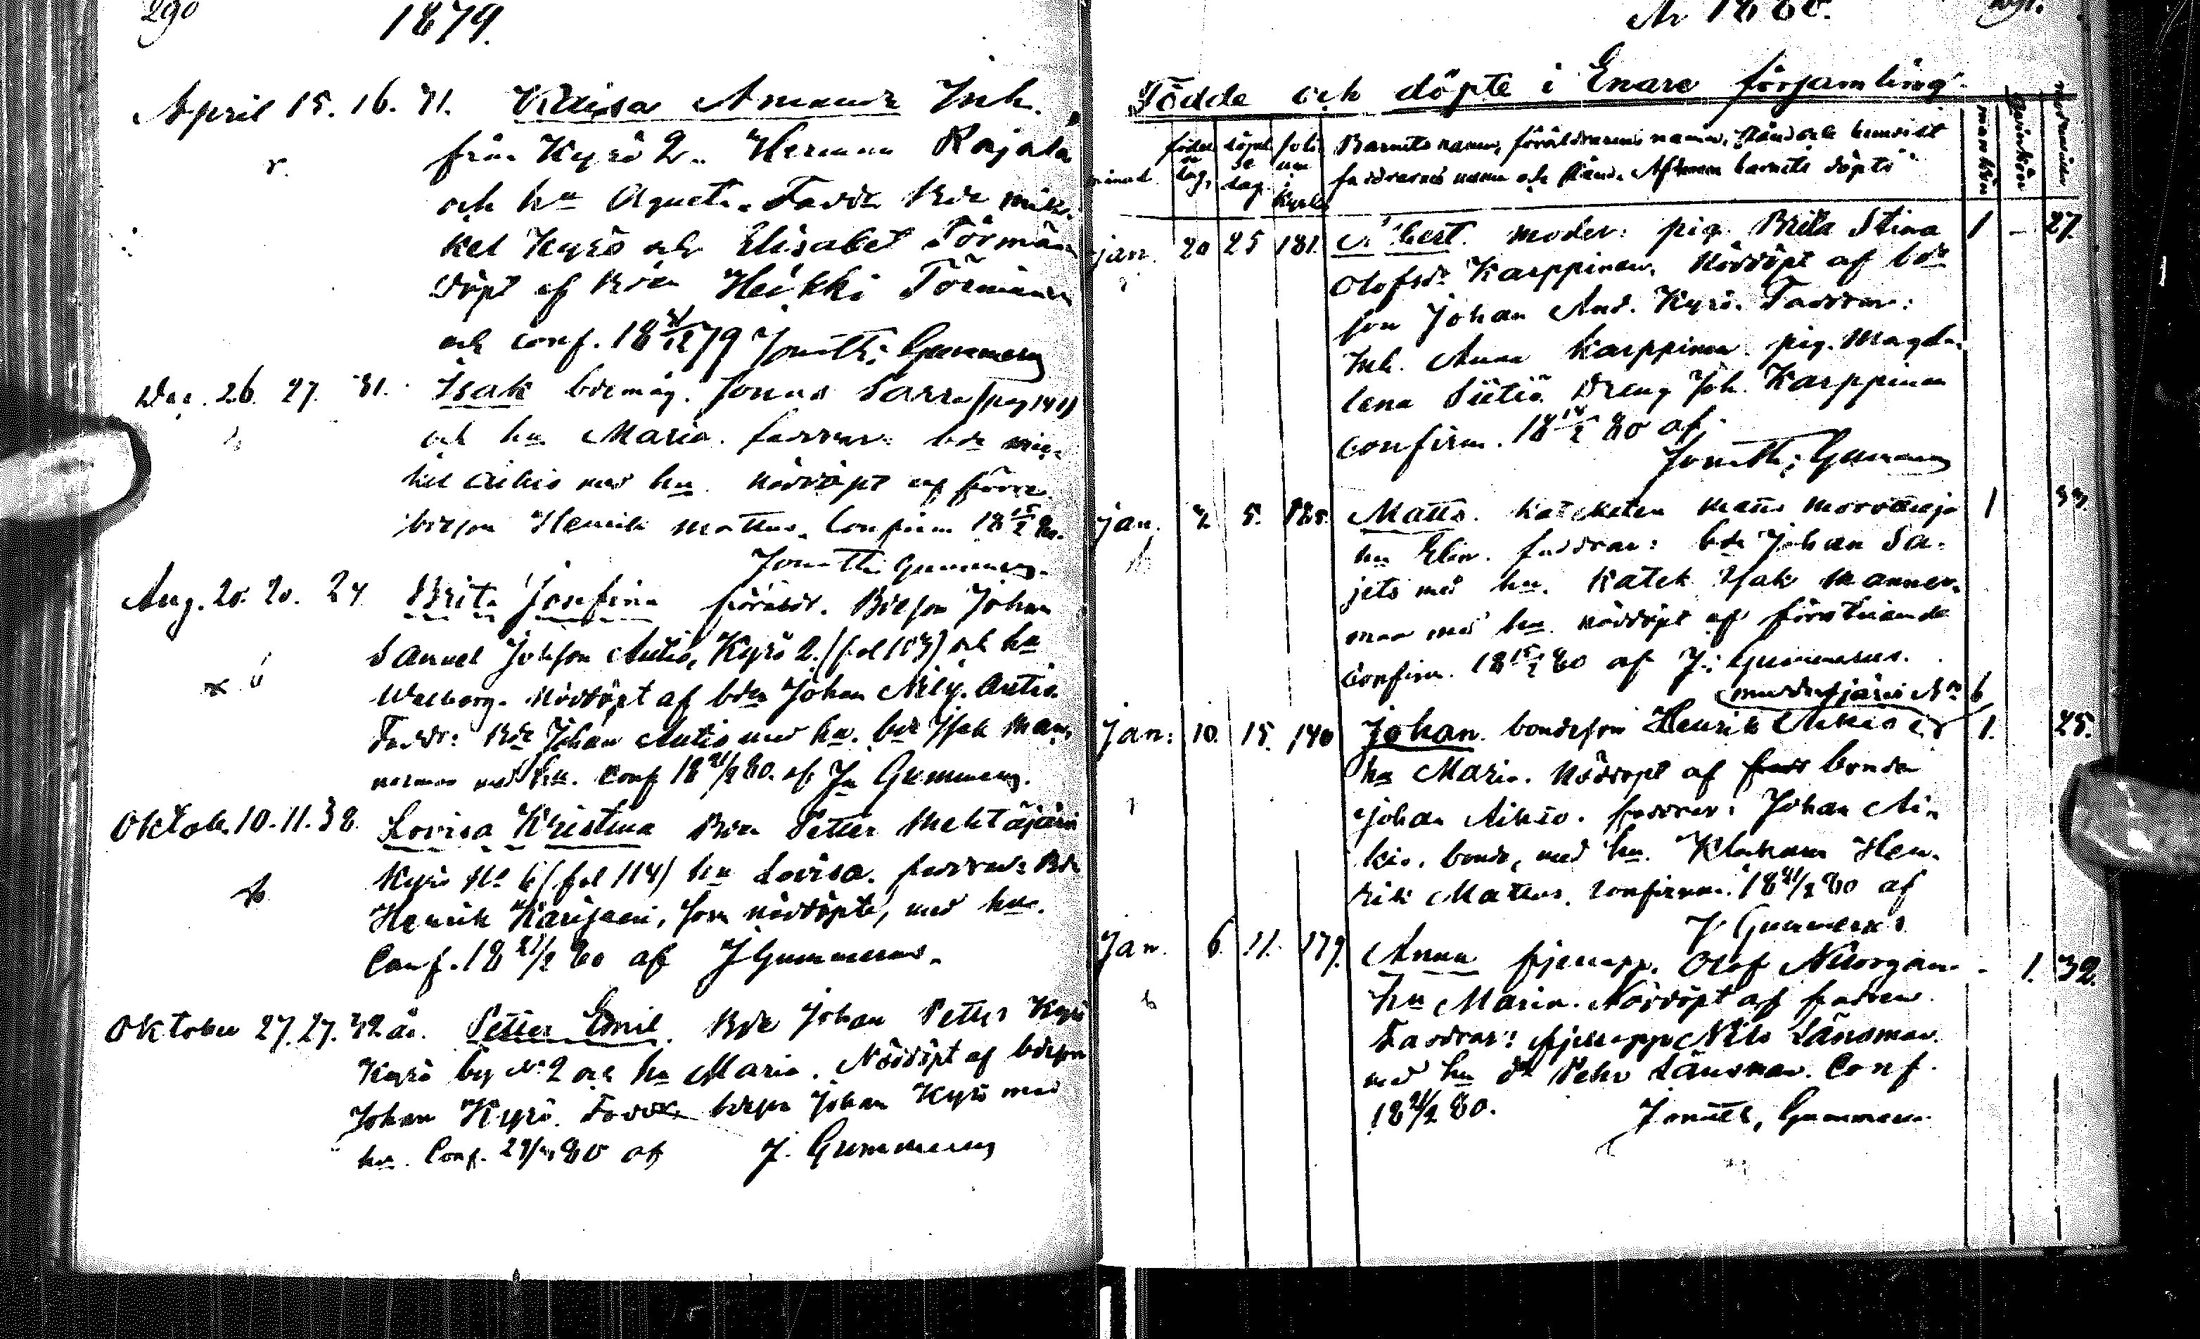 290
1879.
April 15. 16. 31. Kaisa Amanda Inh.
från Kyrö 2. Herman Rajala
och hu Agneta. Fadd. Bde mik-
kel Kyrö och Elisabet Törmän
döpt af Bden Heikki Törmänen
och conf. 18 79 Jonath; Gummerus
Dec. 26. 27. 31. Isak bdemåg. Jonas Sarre (pag 141)
och hu Maria. faddrar: bde mic-
kel Aikio med hu. nöddöpt af förre
bdeson Henrik Mattus. Confirm 18 15/2 80.
Jonath Gummerus.
Aug. 20. 20. 24 Brita Josefina föräldr. Bdeson Johan
Samuel Johsson Autio, Kyrö 2. (fol 103) och hu
Walborg. Nöddöpt af bden Johan Autio.
Faddr: Bde Johan Autio med hu. bde Isak Man-
nermaa med hu. Conf 18 21/2 80. af Jn Gummerus.
Oktob. 10. 11. 38. Lovisa Kristina Bden Petter Mehtäjärvi
Kyrö No 6 (fol 114) hu Lovisa. faddrar: Bde
Henrik Karijärvi, som nöddöpte, med hu.
Conf. 18 21/2 80 af J Gummerus.
Oktober 27. 27. 42 år. Petter Emil. Bde Johan Petter Kyrö
Kyrö by No 2 och hu Maria. Nöddöpt af bdeson
Johan Kyrö. Fadd. bdeson Johan Kyrö med
hu. Conf. 80 af J. Gummerus
År 1880. 291.
Födde och döpte i Enare församling.
månad. födel se dag. döpel se dag. foli um i Kyrkb Barnets namn, föräldrarnes namn, stånd och hemvist
faddrarnes namn och stånd. Af hvem barnet döpts mankön qvinkön modrens ålder
jan. 20 25 181. Albert. moder: pig. Brita Stina 1 - 27.
Olofsdr Karppinen. Nöddöpt af bde
son Johan And. Kyrö. Faddrar:
Inh. Anna Karppinen pig. Magda-
lena Dreng Joh. Karppinen
confirm. 18 80 af;
Jonath; Gummerus
jan. 2. 5. 185. Matts. kateketen Matts Morottaja 1 33.
hu Elin. faddrar: bde Johan Sa-
jets med hu. Katek Isak Manner-
maa med hu. nöddöpt af förstnämnde
confirm. 18 15/2 80 af J; Gummerus.
No 6
Jan: 10. 15. 140 Johan. bondeson Henrik Aikio 1. 25.
hu Maria. Nöddöpt af bonden
Johan Aikio. faddrar: Johan Ai-
kio. bonde, med hu. Klockaren Hen-
rik Mattus. Confirm. 18 21/2 80 af
J Gummerus
Jan. 6. 11. 179. Anna fjellapp. Olof Nuorgam - 1. 32.
hu Maria. Nöddöpt af fadren.
Faddrar: fjellapp Nils Länsman
med hu Pehr Länsman. Conf.
18 21/2 80. Jonath, Gummerus